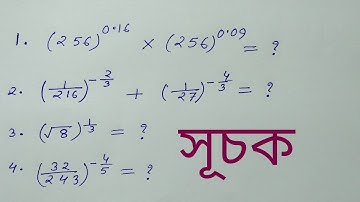 1. (256)^0.16 × (256)^0.09 = ?
2. (1/216)^-2/3 + (1/27)^-4/3 = ?
3. (√8)^1/3 = ?
4. (32/243)^-4/5 = ?
সূচক